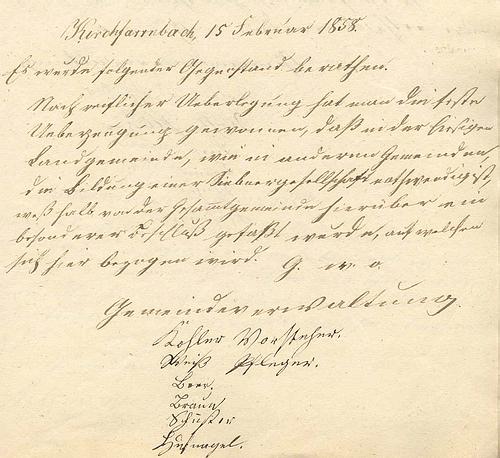 Kirchfarrnbach, 15 Februar 1858.
Es wurde folgender Gegenstand berathen.
Nach reiflicher Ueberlegung hat man die feste
Ueberzeugung gewonnen, daß in der hiesigen
Landgemeinde, wie in anderen Gemeinden,
die Bildung einer Siebnergesellschaft nothwendig ist,
weßhalb von der Gesammtgemeinde hierüber ein
besonderer Beschluß gefaßt wurde, auf welchen
sich hier bezogen wird. G. w. o.
Gemeindeverwaltung.
Köhler Vorsteher.
Weiß Pfleger.
Beer.
Braun
Schuster
Hufnagel.